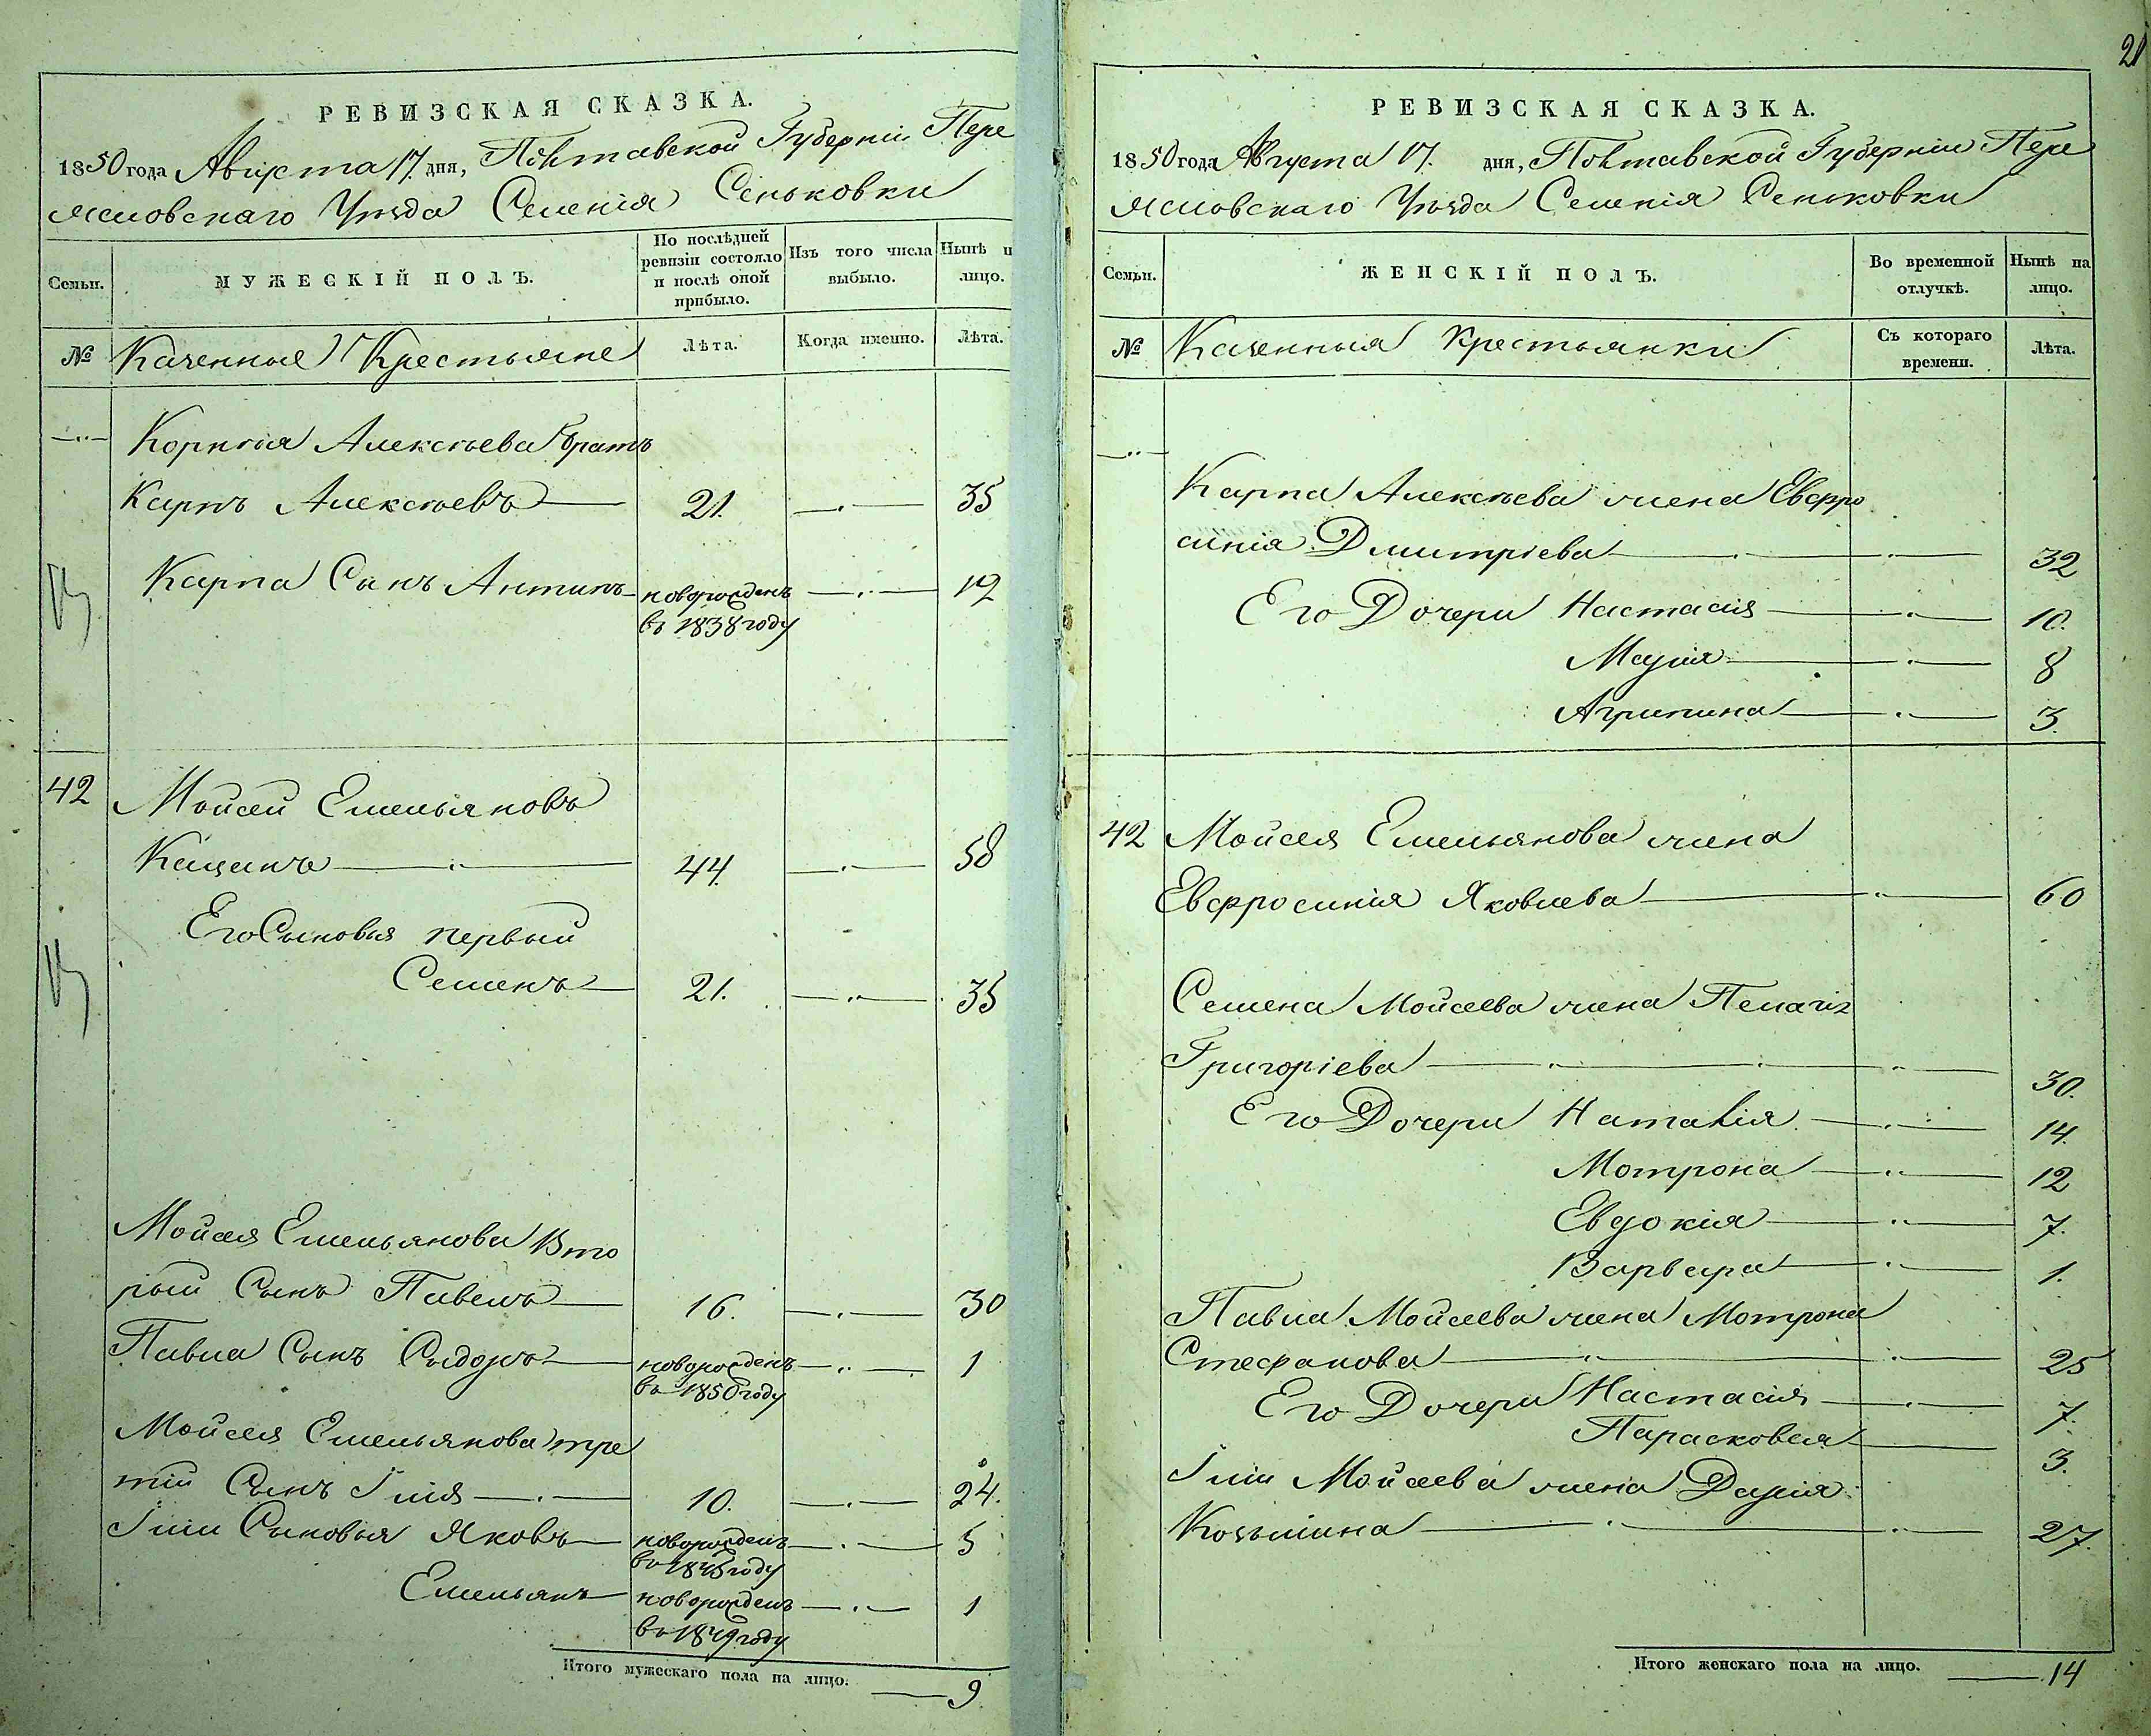 РЕВИЗСКАЯ СКАЗКА.
1850 года Августа 17. дня, Полтавской Губерніи Пере
яславскаго Уѣзда Селенія Сеньковки
Семьи.
МУЖЕСКІЙ ПОЛЪ.
По послѣдней
ревизіи состояло
и послѣ оной
прибыло.
Изъ того числа
выбыло.
Нынѣ н
лицо.
№
Казенные Крестьяне
Лѣта.
Когда именно.
Лѣта.
Корнѣя Алексѣева братъ
Карпъ Алексѣевъ 21. 35
Карпа Сынъ Антипъ новорожденъ 12
въ 1838 году
42 Мойсей Емельяновъ
Кацанъ 44. 58
Его Сыновья первый
Семенъ 21. 35
Мойсея Емельянова Вто
рый Сынъ Павелъ 16. 30
Павла Сынъ Сыдоръ новорожденъ 1
въ 1850 году
Мойсея Емельянова тре
тій Сынъ Ілія 10. 24.
Іліи Сыновья Яковъ новорожденъ 5
въ 1845 году
Емельянъ новорожденъ 1
въ 1849 году
Итого мужескаго пола на лицо. 9
21
РЕВИЗСКАЯ СКАЗКА.
1850 года Августа 17. дня, Полтавской Губерніи Пере
яславскаго Уѣзда Селенія Сеньковки
Семьи.
ЖЕНСКІЙ ПОЛЪ.
Во временной
отлучкѣ.
Нынѣ на
лицо.
№
Казенныя Крестьянки
Съ котораго
времени.
Лѣта.
Карпа Алексѣева жена Евфро
синія Дмитріева 32
Его Дочери Настасія 10.
Марія 8
Агрипина 3.
42 Мойсея Емельянова жена
Евфросинія Яковлева 60
Семена Мойсеева жена Пелагія
Григоріева 30.
Его Дочери Наталія 14.
Мотрона 12
Евдокія 7.
Варвара 1.
Павла Мойсеева жена Мотрона
Стефанова 25
Его Дочери Настасія 7.
Парасковея 3.
Іліи Мойсеева жена Дарія
Козьмина 27.
Итого женскаго пола на лицо. 14